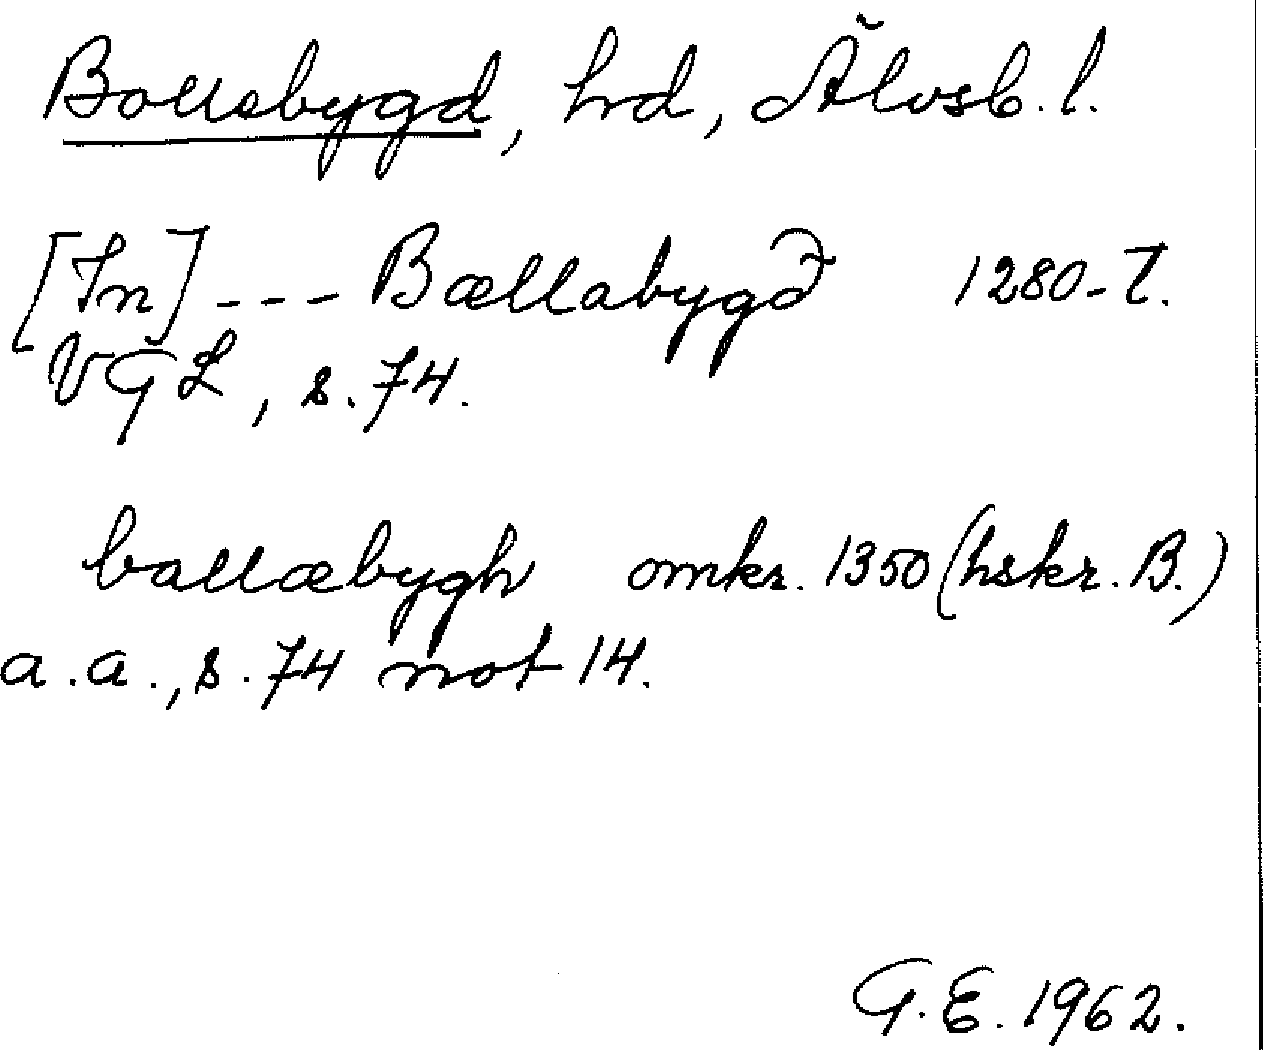 Bollebygd, hd, Älvsb. l.
[In] --- Bællabygð 1280-t.
VGL, s. 74.
ballæbygh omkr. 1350 (hskr. B.)
a.a., s. 74 not 14.
G.E. 1962.